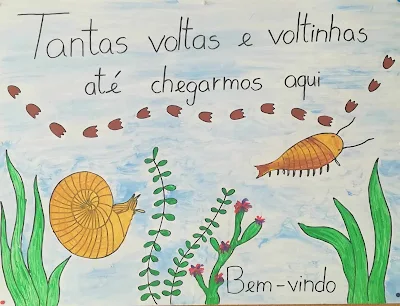 Tantas voltas e voltinhas
até chegarmos aqui
Bem-vindo